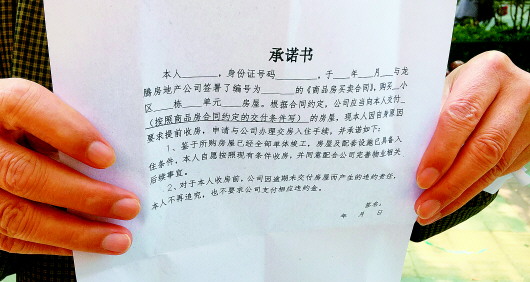 承诺书
本人______，身份证号码________，于___年___月___与龙
腾房地产公司签署了编号为______的《商品房买卖合同》，购买__小
区___栋___单元____房屋。根据合同约定，公司应当向本人交付_
（按照商品房合同约定的交付条件写）的房屋，现本人因自身原因
要求提前收房，申请与公司办理交房入住手续。并承诺如下：
1、鉴于所购房屋已经全部单体竣工，房屋及配套设施已具备入
住条件，本人自愿按照现有条件收房，并同意配合公司完善物业相关
后续事宜。
2、对于本人收房前，公司因逾期未交付房屋而产生的违约责任，
本人不再追究，也不要求公司支付相应违约金。
签名：
年 月 日